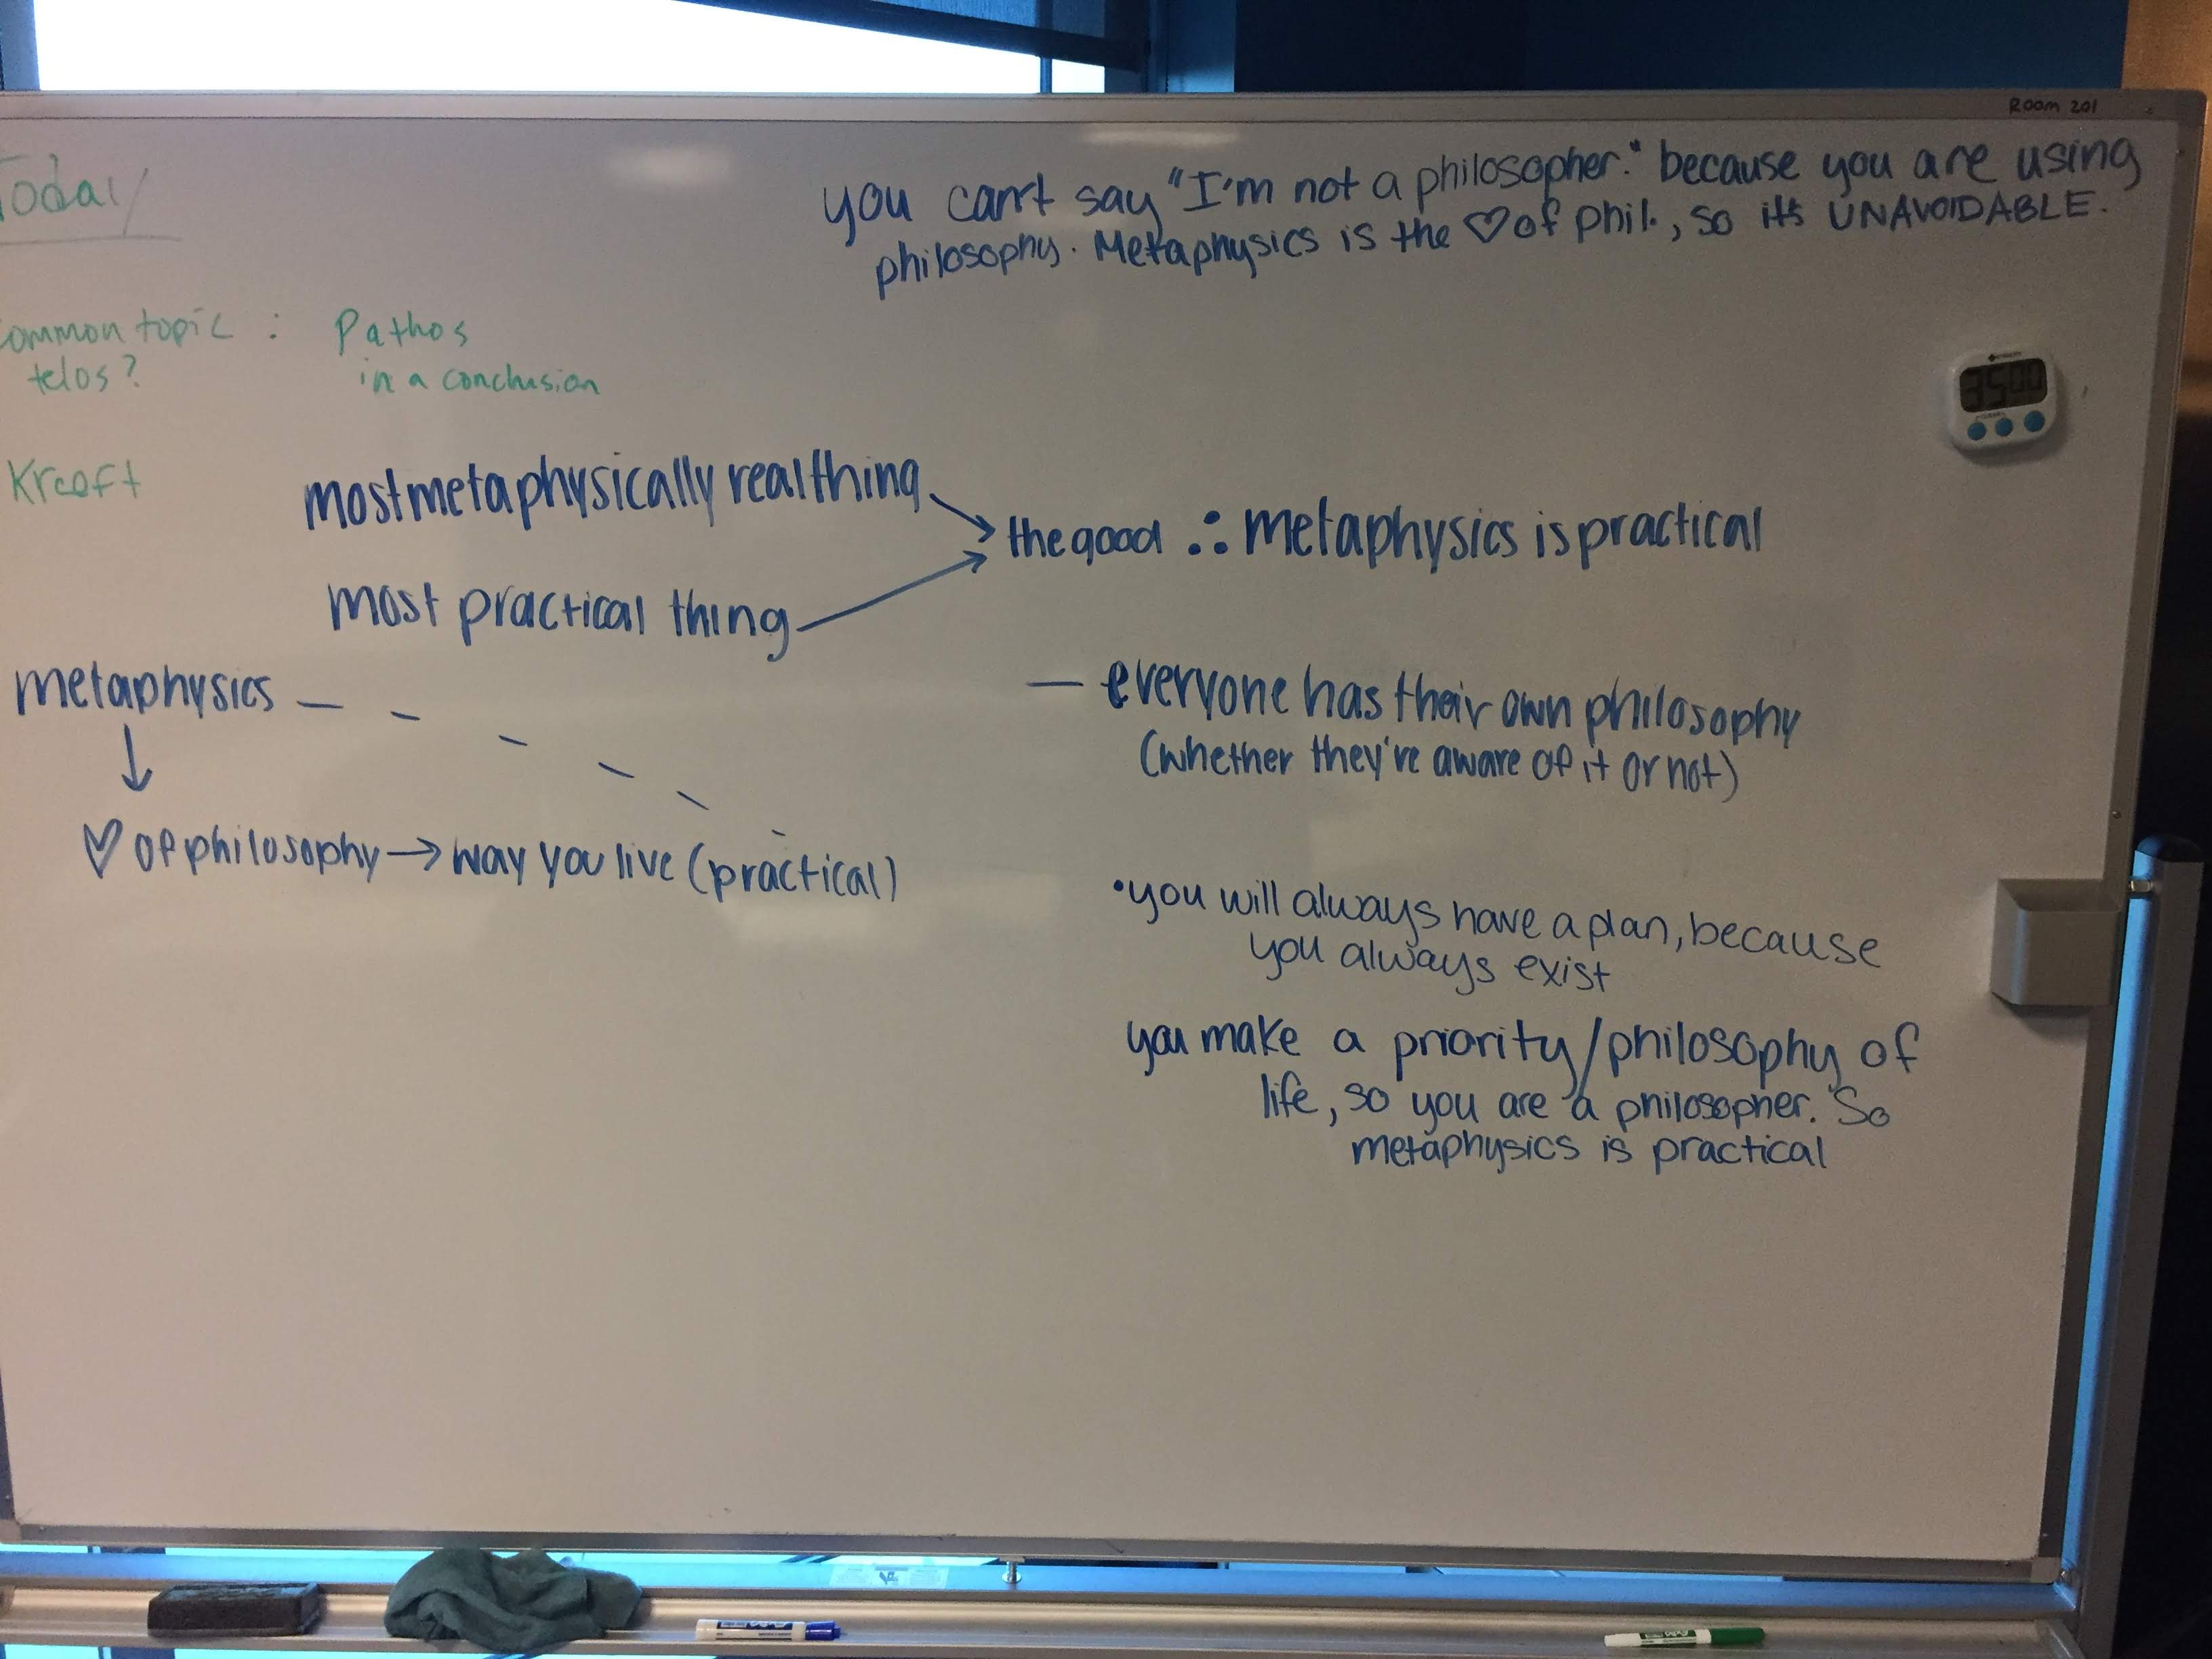 Room 201
Today
you can't say "I'm not a philosopher." because you are using
philosophy. Metaphysics is the ♡ of phil., so it's UNAVOIDABLE.
Common topic : Pathos
telos? in a conclusion
Kreeft
most metaphysically real thing
the good ∴ metaphysics is practical
most practical thing
metaphysics
— everyone has their own philosophy
(whether they're aware of it or not)
↓
♡ of philosophy → way you live (practical)
• you will always have a plan, because
you always exist
you make a priority/philosophy of
life, so you are a philosopher. So
metaphysics is practical
35 00